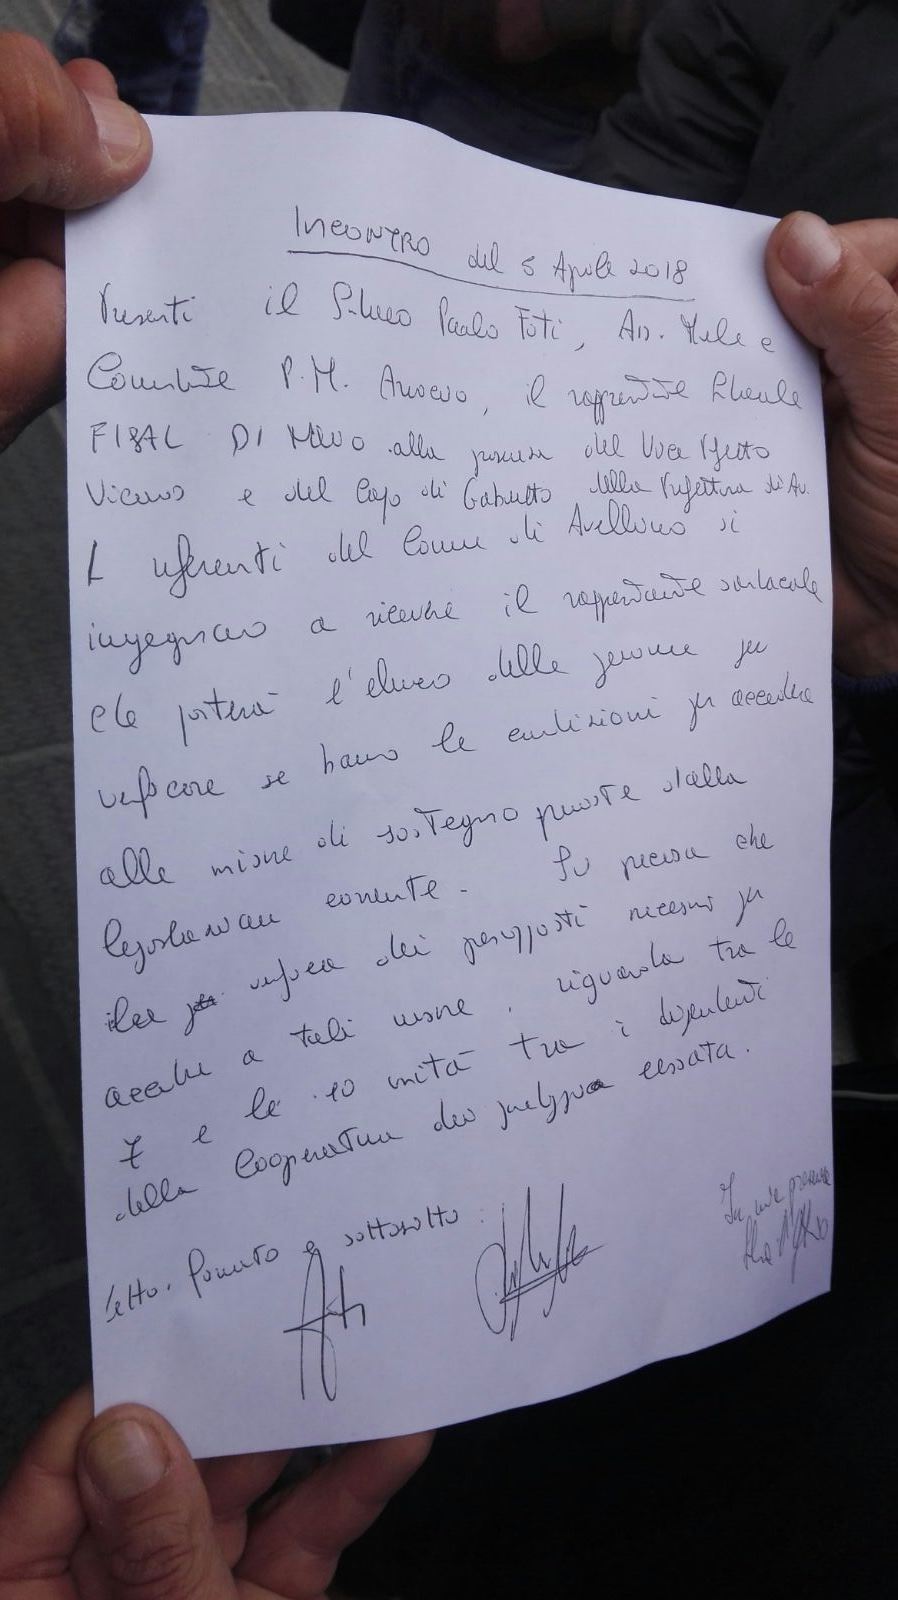 INCONTRO del 5 Aprile 2018
Presenti il Sindaco Paolo Foti, Ass. Mele e
Comandante P.M. Arvonio, il rappresentante Sindacale
FISAL DI alla presenza del Vice Prefetto
Vicario e del Capo di Gabinetto della Prefettura di Av.
I referenti del Comune di Avellino si
impegnano a ricevere il rappresentante sindacale
che porterà l'elenco delle persone per
verificare se hanno le condizioni per accedere
alle misure di sostegno previste dalla
legislazione corrente. Si precisa che
la verifica dei presupposti necessari per
accedere a tali misure, riguarda tra le
7 e le 10 unità tra i dipendenti
della Cooperativa cessata.
Letto, firmato e sottoscritto
In mia presenza